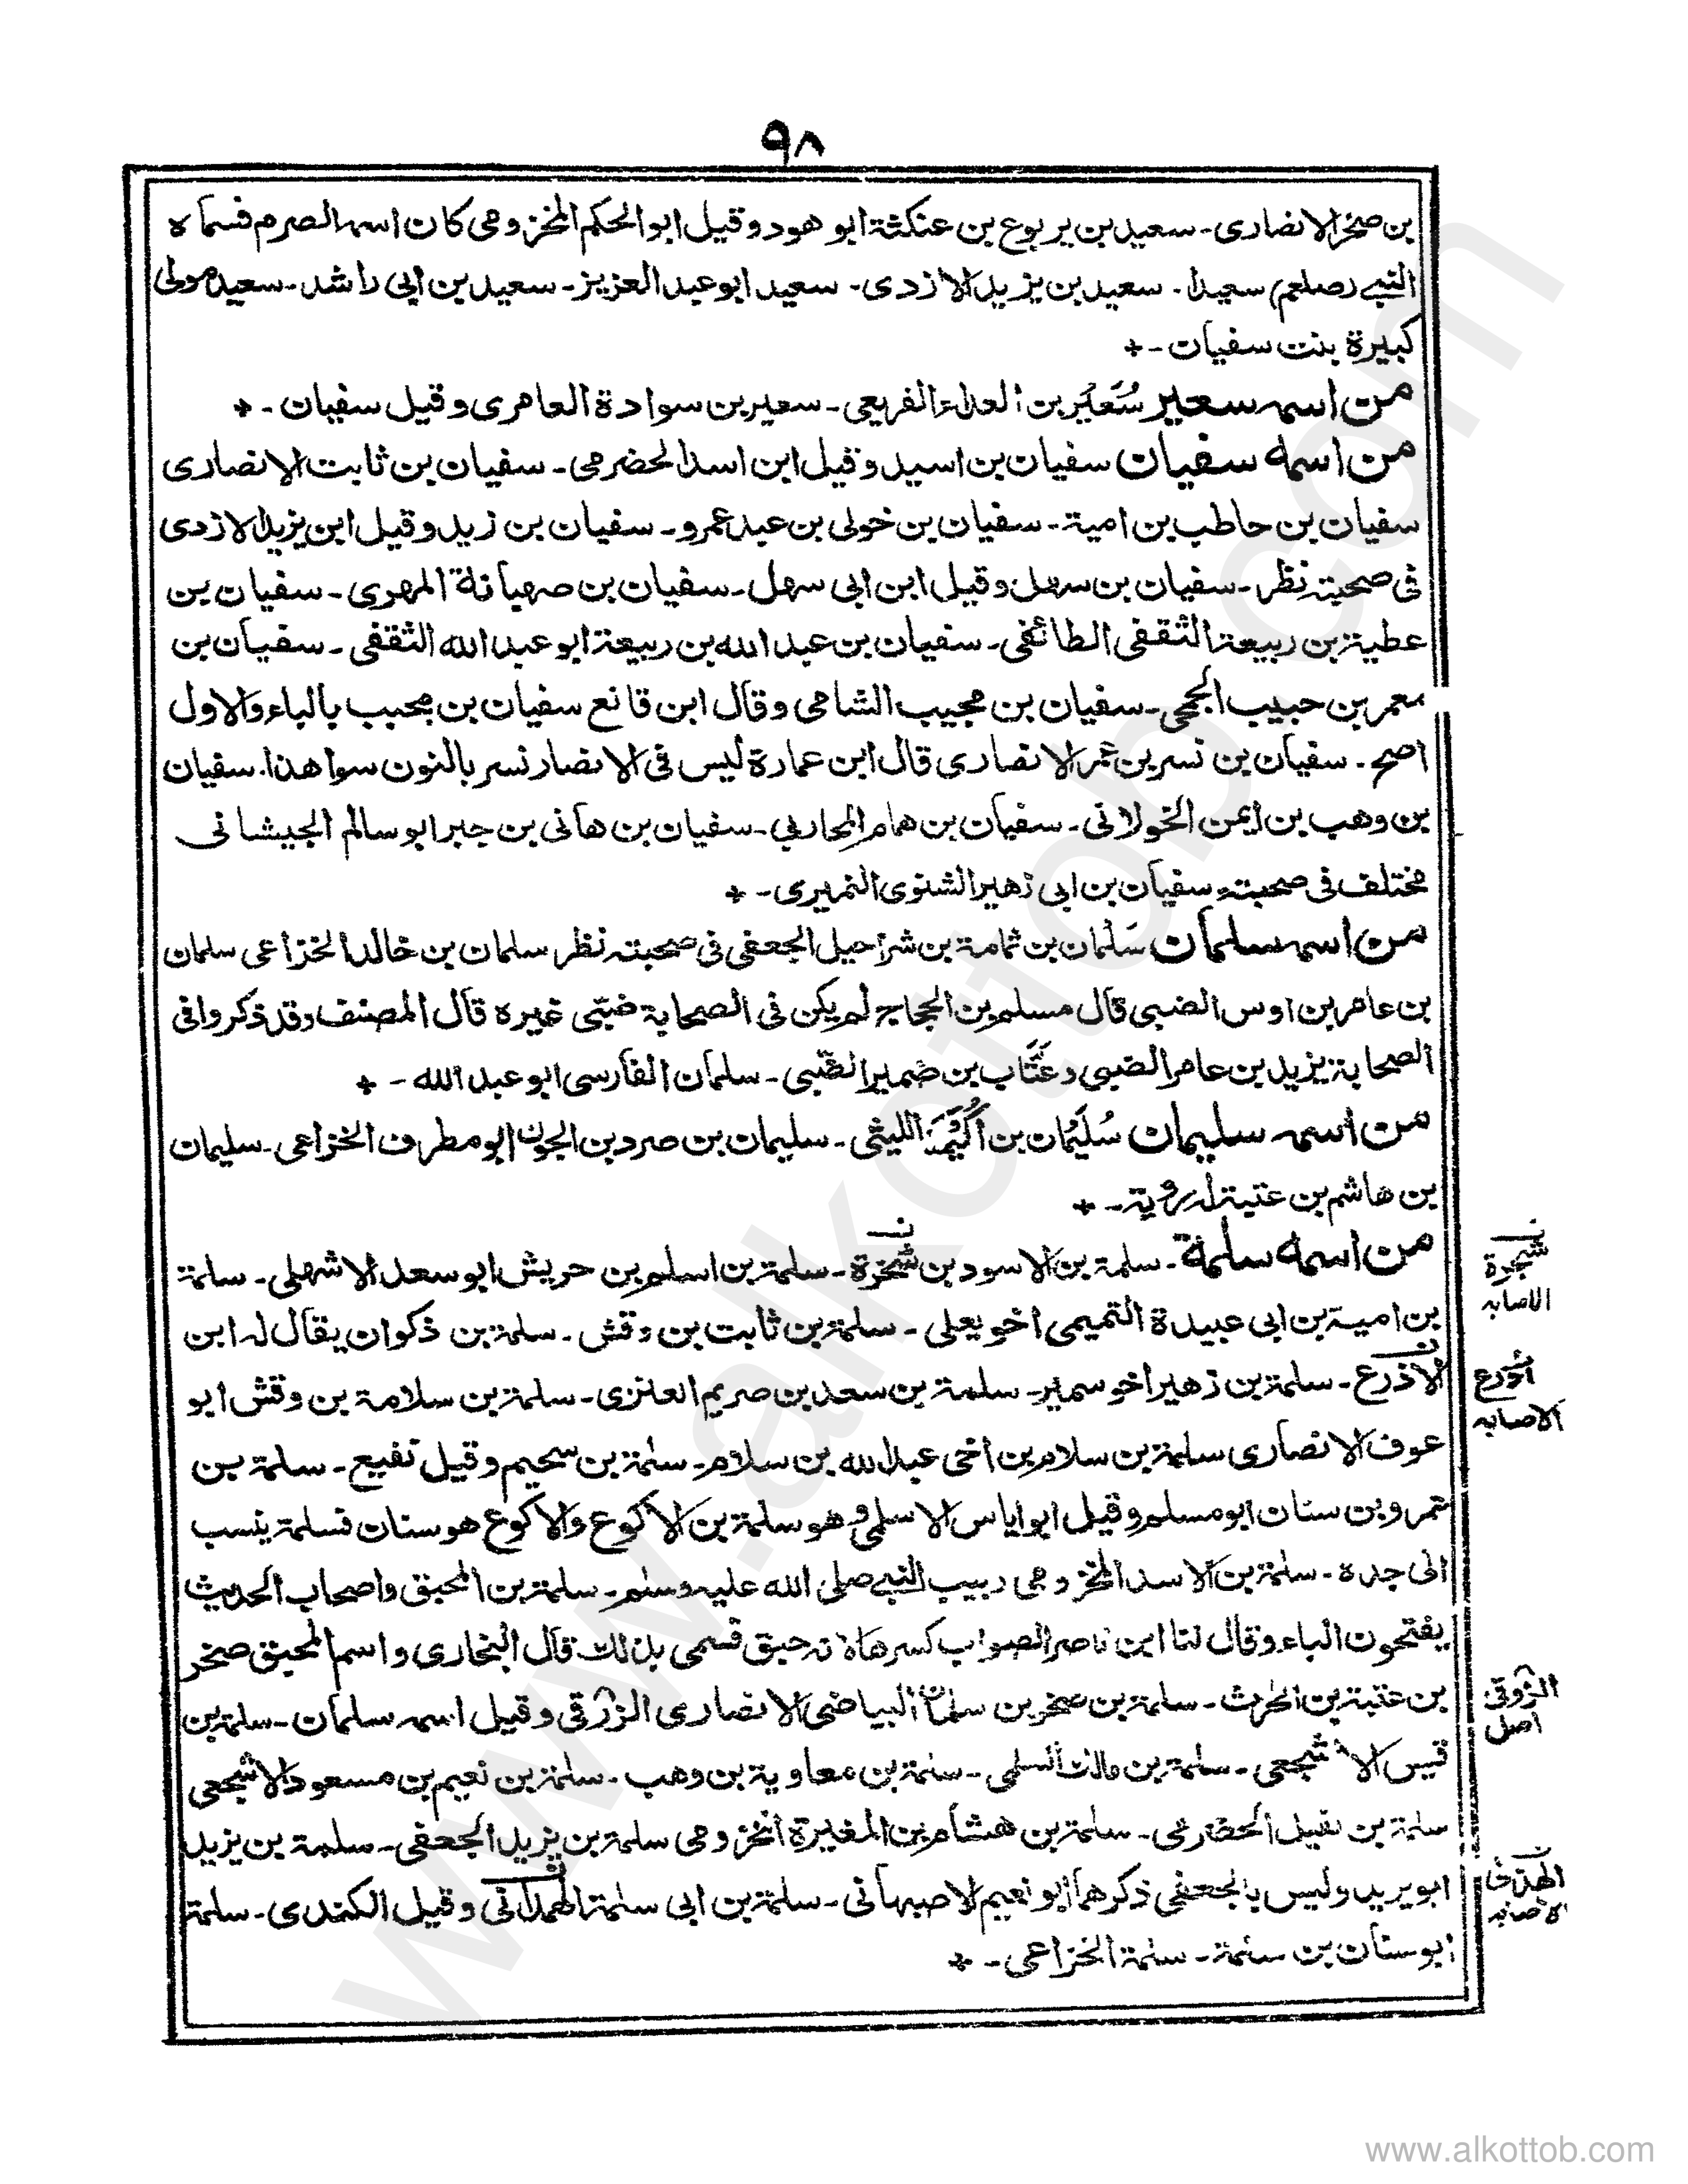 ٩٨
بن صخر الانصارى - سعيد بن يربوع بن عنكثة ابو هود وقيل ابو الحكم المخزومى كان اسمه الصرم فسماه
النبى (صلعم) سعيدا - سعيد بن يزيد الازدى - سعيد ابو عبد العزيز - سعيد بن ابى راشد - سعيد مولى
كبيرة بنت سفيان - *
من اسمه سعير سُعَير بن العداء الفريعى - سعير بن سوادة العامرى وقيل سفيان - *
من اسمه سفيان سفيان بن اسيد وقيل ابن اسد الحضرمى - سفيان بن ثابت الانصارى
سفيان بن حاطب بن امية - سفيان بن خولى بن عبد عمرو - سفيان بن زيد وقيل ابن يزيد الازدى
فى صحبته نظر - سفيان بن سهل وقيل ابن ابى سهل - سفيان بن صهبانة المهرى - سفيان بن
عطية بن ربيعة الثقفى الطائفى - سفيان بن عبد الله بن ربيعة ابو عبد الله الثقفى - سفيان بن
معمر بن حبيب الجمحى - سفيان بن مجيب الشامى وقال ابن قانع سفيان بن مجبب بالباء والاول
اصح - سفيان بن نسر بن عمر الانصارى قال ابن عمارة ليس فى الانصار نسر بالنون سوا هذا - سفيان
بن وهب بن ايمن الخولانى - سفيان بن همام المحاربى - سفيان بن هانى بن جبر ابو سالم الجيشانى
مختلف فى صحبته سفيان بن ابى زهير الشنوى النميرى - *
من اسمه سلمان سَلمان بن ثمامة بن شراحيل الجعفى فى صحبته نظر سلمان بن خالد الخزاعى سلمان
بن عامر بن اوس الضبى قال مسلم بن الحجاج لم يكن فى الصحابة ضبّى غيره قال المصنف وقد ذكروا فى
الصحابة يزيد بن عامر الضبى وعَتَّاب بن ضمير الضّبى - سلمان الفارسى ابو عبد الله - *
من اسمه سليمان سُلَيْمان بن اُكَيْمَة الليثى - سليمان بن صرد بن الجون ابو مطرف الخزاعى - سليمان
بن هاشم بن عتبة له روية - *
من اسمه سلمة - سلمة بن الاسود بن شجرة - سلمة بن اسلم بن حريش ابو سعد الاشهلى - سلمة
بن امية بن ابى عبيدة التميمى اخو يعلى - سلمة بن ثابت بن وقش - سلمة بن ذكوان يقال له ابن
الاذرع - سلمة بن زهير اخو سمير - سلمة بن سعد بن صريم العنزى - سلمة بن سلامة بن وقش ابو
عوف الانصارى سلمة بن سلام بن اخى عبد الله بن سلام - سلمة بن سحيم وقيل نفيع - سلمة بن
عمرو بن سنان ابو مسلم وقيل ابو اياس الاسلمى وهو سلمة بن الاكوع والاكوع هو سنان فسلمة ينسب
الى جده - سلمة بن الاسد المخزومى ربيب النبى صلى الله عليه وسلم - سلمة بن المحبق واصحاب الحديث
يفتحون الباء وقال لنا ابن ناصر الصواب كسرها لانه حبق فسمى بذلك قال البخارى واسم المحبق صخر
بن عتبة بن الحرث - سلمة بن صخر بن سلمان البياضى الانصارى الزرقى وقيل اسمه سلمان - سلمة بن
قيس الاشجعى - سلمة بن مالك السلمى - سلمة بن معاوية بن وهب - سلمة بن نعيم بن مسعود الاشجعى
سلمة بن نفيل الحضرمى - سلمة بن هشام بن المغيرة المخزومى سلمة بن يزيد الجعفى - سلمة بن يزيد
ابو يريد وليس بالجعفى ذكرهما ابو نعيم الاصبهانى - سلمة بن ابى سلمة الهمدانى وقيل الكندى - سلمة
ابو سنان بن سلمة - سلمة الخزاعى - *
شجرة
الاصابه
الاصابه
الزوقى
اصل
الاصابه
www.alkottob.com